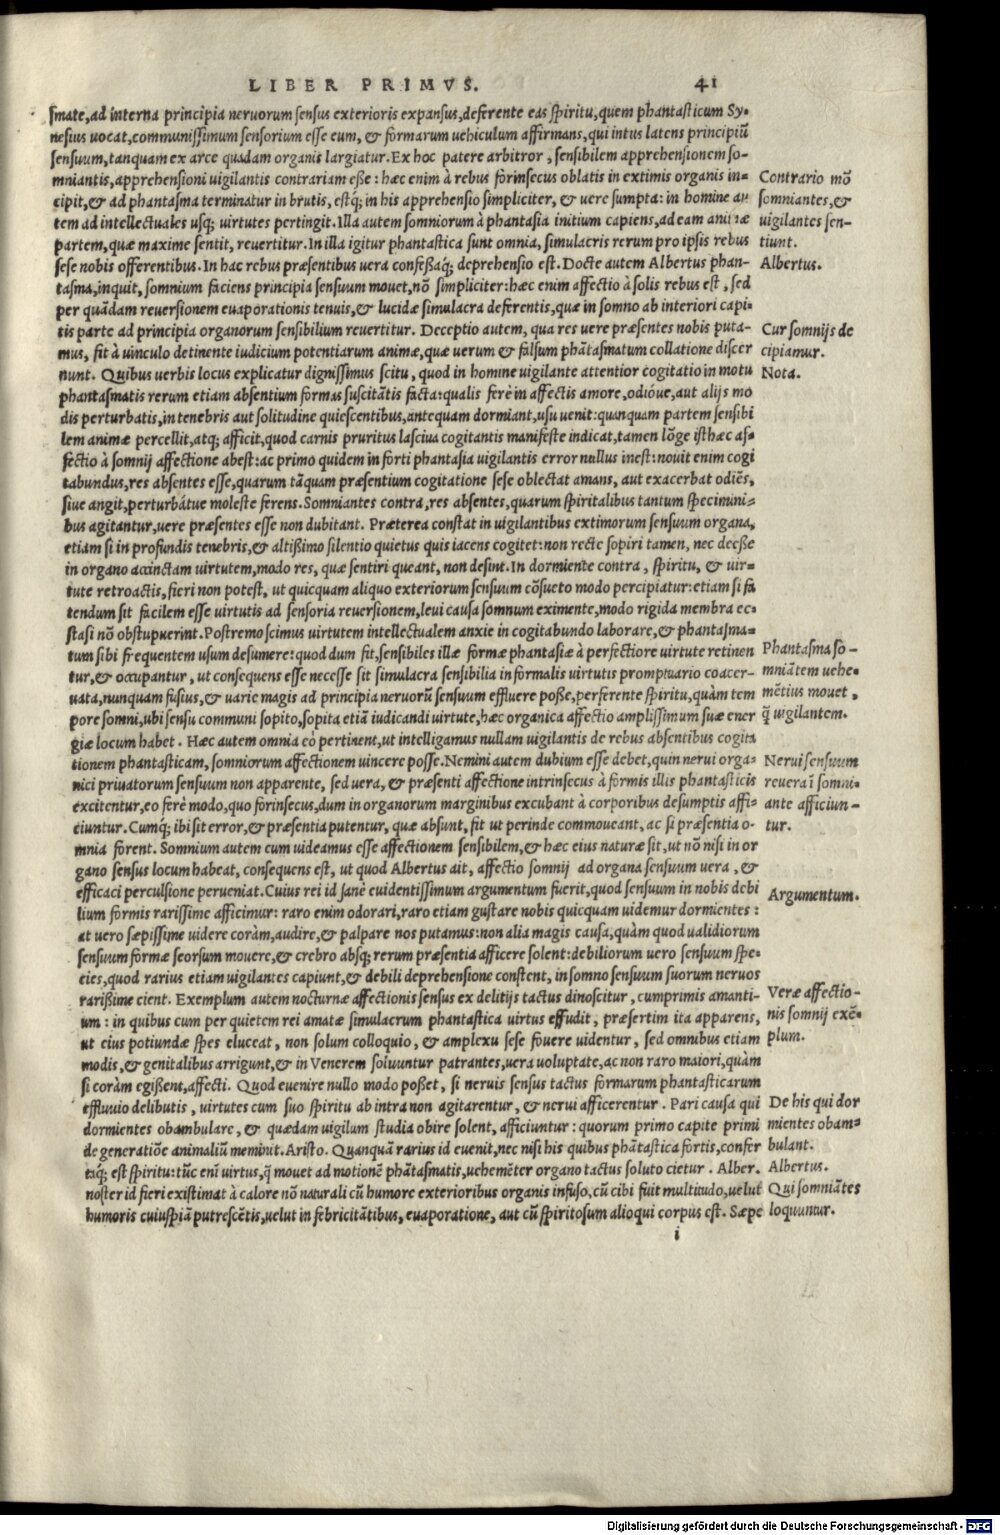 LIBER PRIMVS. 41
smate,ad interna principia neruorum sensus exterioris expansus,deferente eas spiritu,quem phantasticum Sy-
nesius uocat,communissimum sensorium esse eum, & formarum uehiculum affirmans,qui intus latens principiũ
sensuum,tanquam ex arce quadam organis largiatur. Ex hoc patere arbitror , sensibilem apprehensionem so-
mniantis,apprehensioni uigilantis contrariam eße : hæc enim à rebus forinsecus oblatis in extimis organis in-
cipit,& ad phantasma terminatur in brutis, estq́; in his apprehensio simpliciter, & uere sumpta: in homine au
tem ad intellectuales usq; uirtutes pertingit. Illa autem somniorum à phantasia initium capiens,ad eam animæ
partem,quæ maxime sentit, reuertitur. In illa igitur phantastica sunt omnia, simulacris rerum pro ipsis rebus
sese nobis offerentibus. In hac rebus præsentibus uera confeßaq́; deprehensio est. Docte autem Albertus phan-
tasma,inquit, somnium faciens principia sensuum mouet,nõ simpliciter:hæc enim affectio à solis rebus est , sed
per quãdam reuersionem euaporationis tenuis,& lucidæ simulacra deferentis,quæ in somno ab interiori capi-
tis parte ad principia organorum sensibilium reuertitur. Deceptio autem, qua res uere præsentes nobis puta-
mus, fit à uinculo detinente iudicium potentiarum animæ,quæ uerum & falsum phãtasmatum collatione discer
nunt. Quibus uerbis locus explicatur dignissimus scitu, quod in homine uigilante attentior cogitatio in motu
phantasmatis rerum etiam absentium formas suscitãtis facta:qualis ferè in affectis amore,odióue,aut alijs mo
dis perturbatis,in tenebris aut solitudine quiescentibus,antequam dormiant,usu uenit:quanquam partem sensibi
lem animæ percellit,atq; afficit,quod carnis pruritus lasciua cogitantis manifeste indicat,tamen lõge isthæc af-
fectio à somnij affectione abest:ac primo quidem in forti phantasia uigilantis error nullus inest:nouit enim cogi
tabundus,res absentes esse,quarum tãquam præsentium cogitatione sese oblectat amans, aut exacerbat odiẽs,
siue angit,perturbátue moleste ferens. Somniantes contra,res absentes,quarum spiritalibus tantum specimini-
bus agitantur,uere præsentes esse non dubitant. Præterea constat in uigilantibus extimorum sensuum organa,
etiam si in profundis tenebris,& altißimo silentio quietus quis iacens cogitet:non recte sopiri tamen, nec deeße
in organo accinctam uirtutem,modo res, quæ sentiri queant, non desint. In dormiente contra , spiritu, & uir-
tute retroactis, fieri non potest, ut quicquam aliquo exteriorum sensuum cõsueto modo percipiatur:etiam si fa
tendum sit facilem esse uirtutis ad sensoria reuersionem,leui causa somnum eximente,modo rigida membra ec-
stasi nõ obstupuerint. Postremo scimus uirtutem intellectualem anxie in cogitabundo laborare,& phantasma-
tum sibi frequentem usum desumere:quod dum fit,sensibiles illæ formæ phantasiæ à perfectiore uirtute retinen
tur,& occupantur, ut consequens esse necesse sit simulacra sensibilia in formalis uirtutis promptuario coacer-
uata,nunquam fusius,& uarie magis ad principia neruorũ sensuum effluere poße,perferente spiritu,quàm tem
pore somni,ubi sensu communi sopito,sopita etiã iudicandi uirtute,hæc organica affectio amplissimum suæ ener
giæ locum habet . Hæc autem omnia eò pertinent,ut intelligamus nullam uigilantis de rebus absentibus cogita
tionem phantasticam, somniorum affectionem uincere posse. Nemini autem dubium esse debet,quin nerui orga-
nici priuatorum sensuum non apparente, sed uera, & præsenti affectione intrinsecus à formis illis phantasticis
excitentur,eo ferè modo,quo forinsecus,dum in organorum marginibus excubant à corporibus desumptis affi-
ciuntur. Cumq́; ibi sit error,& præsentia putentur, quæ absunt,fit ut perinde commoueant,ac si præsentia o-
mnia forent. Somnium autem cum uideamus esse affectionem sensibilem,& hæc eius naturæ sit,ut nõ nisi in or
gano sensus locum habeat, consequens est, ut quod Albertus ait, affectio somnij ad organa sensuum uera , &
efficaci perculsione perueniat. Cuius rei id sanè euidentissimum argumentum fuerit,quod sensuum in nobis debi
lium formis rarissime afficimur: raro enim odorari,raro etiam gustare nobis quicquam uidemur dormientes :
at uero sæpissime uidere coràm,audire,& palpare nos putamus:non alia magis causa,quàm quod ualidiorum
sensuum formæ seorsum mouere,& crebro absq; rerum præsentia afficere solent:debiliorum uero sensuum spe-
cies,quod rarius etiam uigilantes capiunt,& debili deprehensione constent, in somno sensuum suorum neruos
rarißime cient. Exemplum autem nocturnæ affectionis sensus ex delitijs tactus dinoscitur , cumprimis amanti-
um : in quibus cum per quietem rei amatæ simulacrum phantastica uirtus effudit , præsertim ita apparens,
ut eius potiundæ spes eluceat , non solum colloquio, & amplexu sese fouere uidentur, sed omnibus etiam
modis,& genitalibus arrigunt,& in Venerem soluuntur patrantes,uera uoluptate,ac non raro maiori,quàm
si coràm egißent,affecti. Quod euenire nullo modo poßet, si neruis sensus tactus formarum phantasticarum
effluuio delibutis , uirtutes cum suo spiritu ab intra non agitarentur , & nerui afficerentur . Pari causa qui
dormientes obambulare, & quædam uigilum studia obire solent, afficiuntur : quorum primo capite primi
de generatiõe animaliũ meminit. Aristo. Quanquã rarius id euenit,nec nisi his quibus phãtastica fortis,confer
taq́; est spiritu:tũc enĩ uirtus,q̃ mouet ad motionẽ phãtasmatis,uehemẽter organo tactus soluto cietur . Alber.
noster id fieri existimat à calore nõ naturali cũ humore exterioribus organis infuso,cũ cibi fuit multitudo,uelut
humoris cuiuspiã putrescẽtis,uelut in febricitãtibus, euaporatione, aut cũ spiritosum alioqui corpus est. Sæpe
i
Contrario mõ
somniantes,&
uigilantes sen-
tiunt.
Albertus.
Cur somnijs de
cipiamur.
Nota.
Phantasma so-
mniãtem uehe-
mẽtius mouet ,
q̃ uigilantem.
Nerui sensuum
reuera ĩ somni-
ante afficiun-
tur.
Argumentum.
Veræ affectio-
nis somnij exẽ-
plum.
De his qui dor
mientes obam-
bulant.
Albertus.
Qui somniãtes
loquuntur.
Digitalisierung gefördert durch die Deutsche Forschungsgemeinschaft - DFG